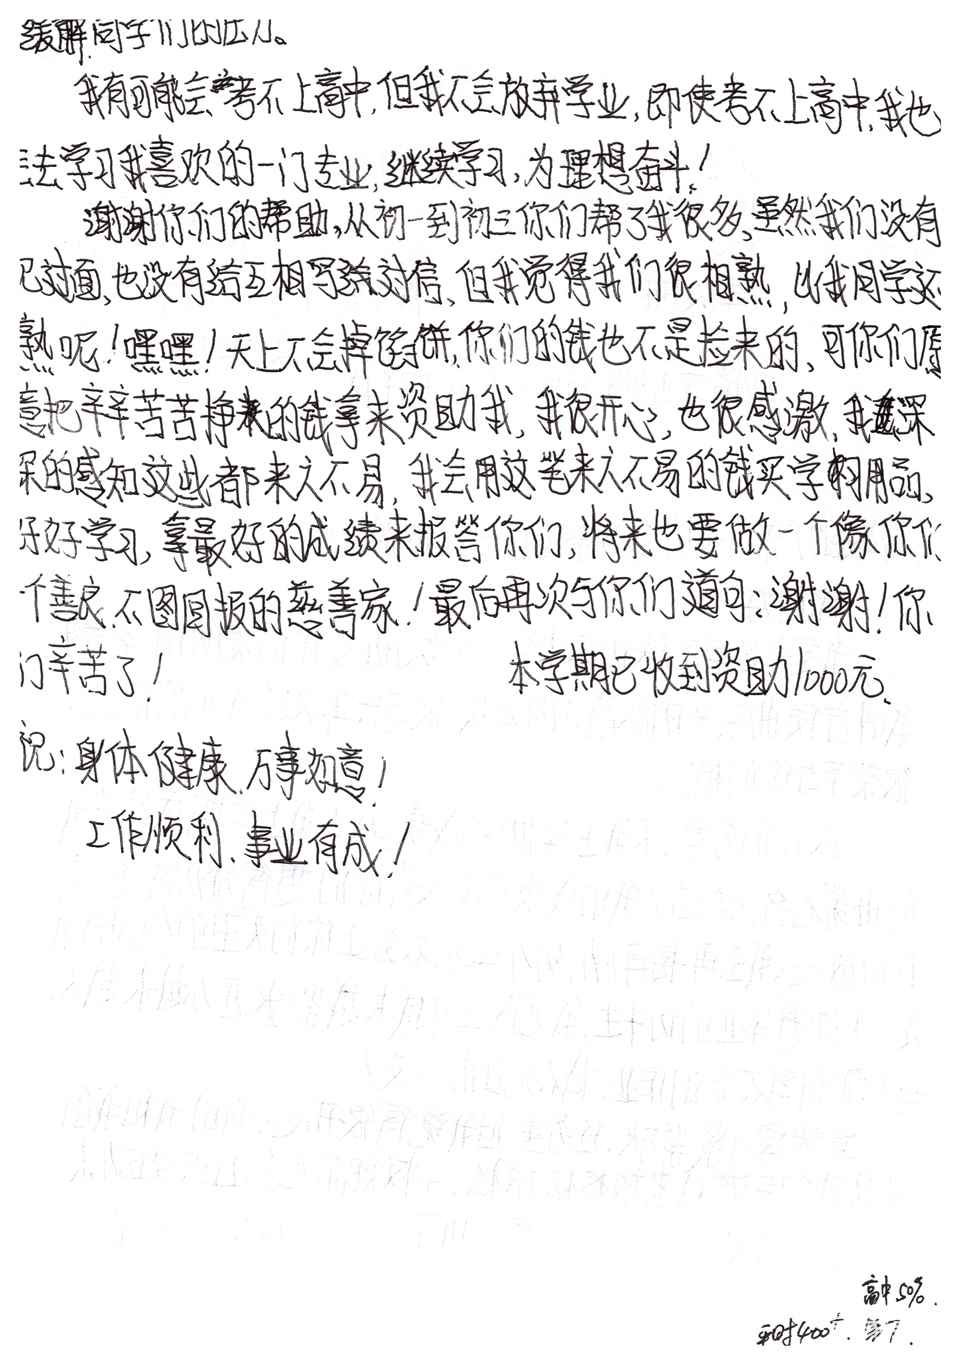 缓解同学们的压力。
我有可能会考不上高中,但我不会放弃学业,即使考不上高中,我也
去学习我喜欢的一门专业,继续学习,为理想奋斗!
谢谢你们的帮助,从初一到初三你们帮了我很多,虽然我们没有
见过面,也没有给互相写给过信,但我觉得我们很相熟,比我同学还
熟呢!嘿嘿!天上不会掉馅饼,你们的钱也不是捡来的,可你们愿
意把辛辛苦苦挣来的钱拿来资助我,我很开心,也很感激,我深
深的感知这些都来之不易,我会用这笔来之不易的钱买学习用品,
好好学习,拿最好的成绩来报答你们,将来也要做一个像你们
一个善良、不图回报的慈善家!最后再次与你们道句:谢谢!你
们辛苦了!
本学期已收到资助1000元。
祝:身体健康、万事如意!
工作顺利、事业有成!
高中50%.
400+.